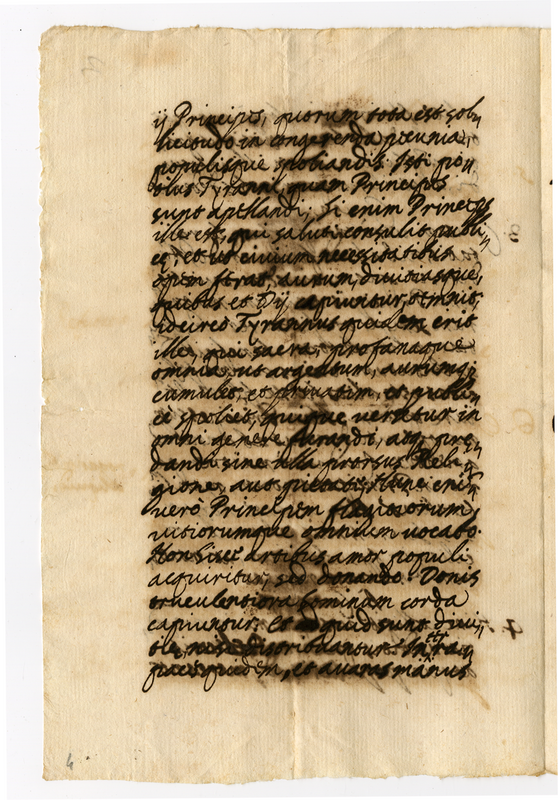 ij Principis, quorum tota est sol„
licitudo in congerenda pecunia,
populisque spoliandis. Isti po„
tius Tyranni, quam Principes
sunt apellandi; Si enim Princeps
ille est, qui saluti consulit publi„
cę, et ut civium necessitatibus
opem ferat, aurum, divitiasque,
quibus et Dij capiuntur,
idcirco Tyrannus quidem erit
ille, qui sacra, profanaque
omnia, ut argentum, aurumq;
cumulet, et privatim, et publi„
cè spoliet, quique versatur in
omni genere furandi, atq; prę„
dandi sine ulla prorsus Reli„
gione, aut pietate; hunc enim
verò Principem flagitiorum,
vitiorumque omnium vocabo.
Non sisce artibus amor populi
acquiritur, sed donando. Donis
truculentiora hominum corda
capiuntur. Et ad quid sunt divi„
tię, nisi distribuantur?
quidem, et avaras manus
4